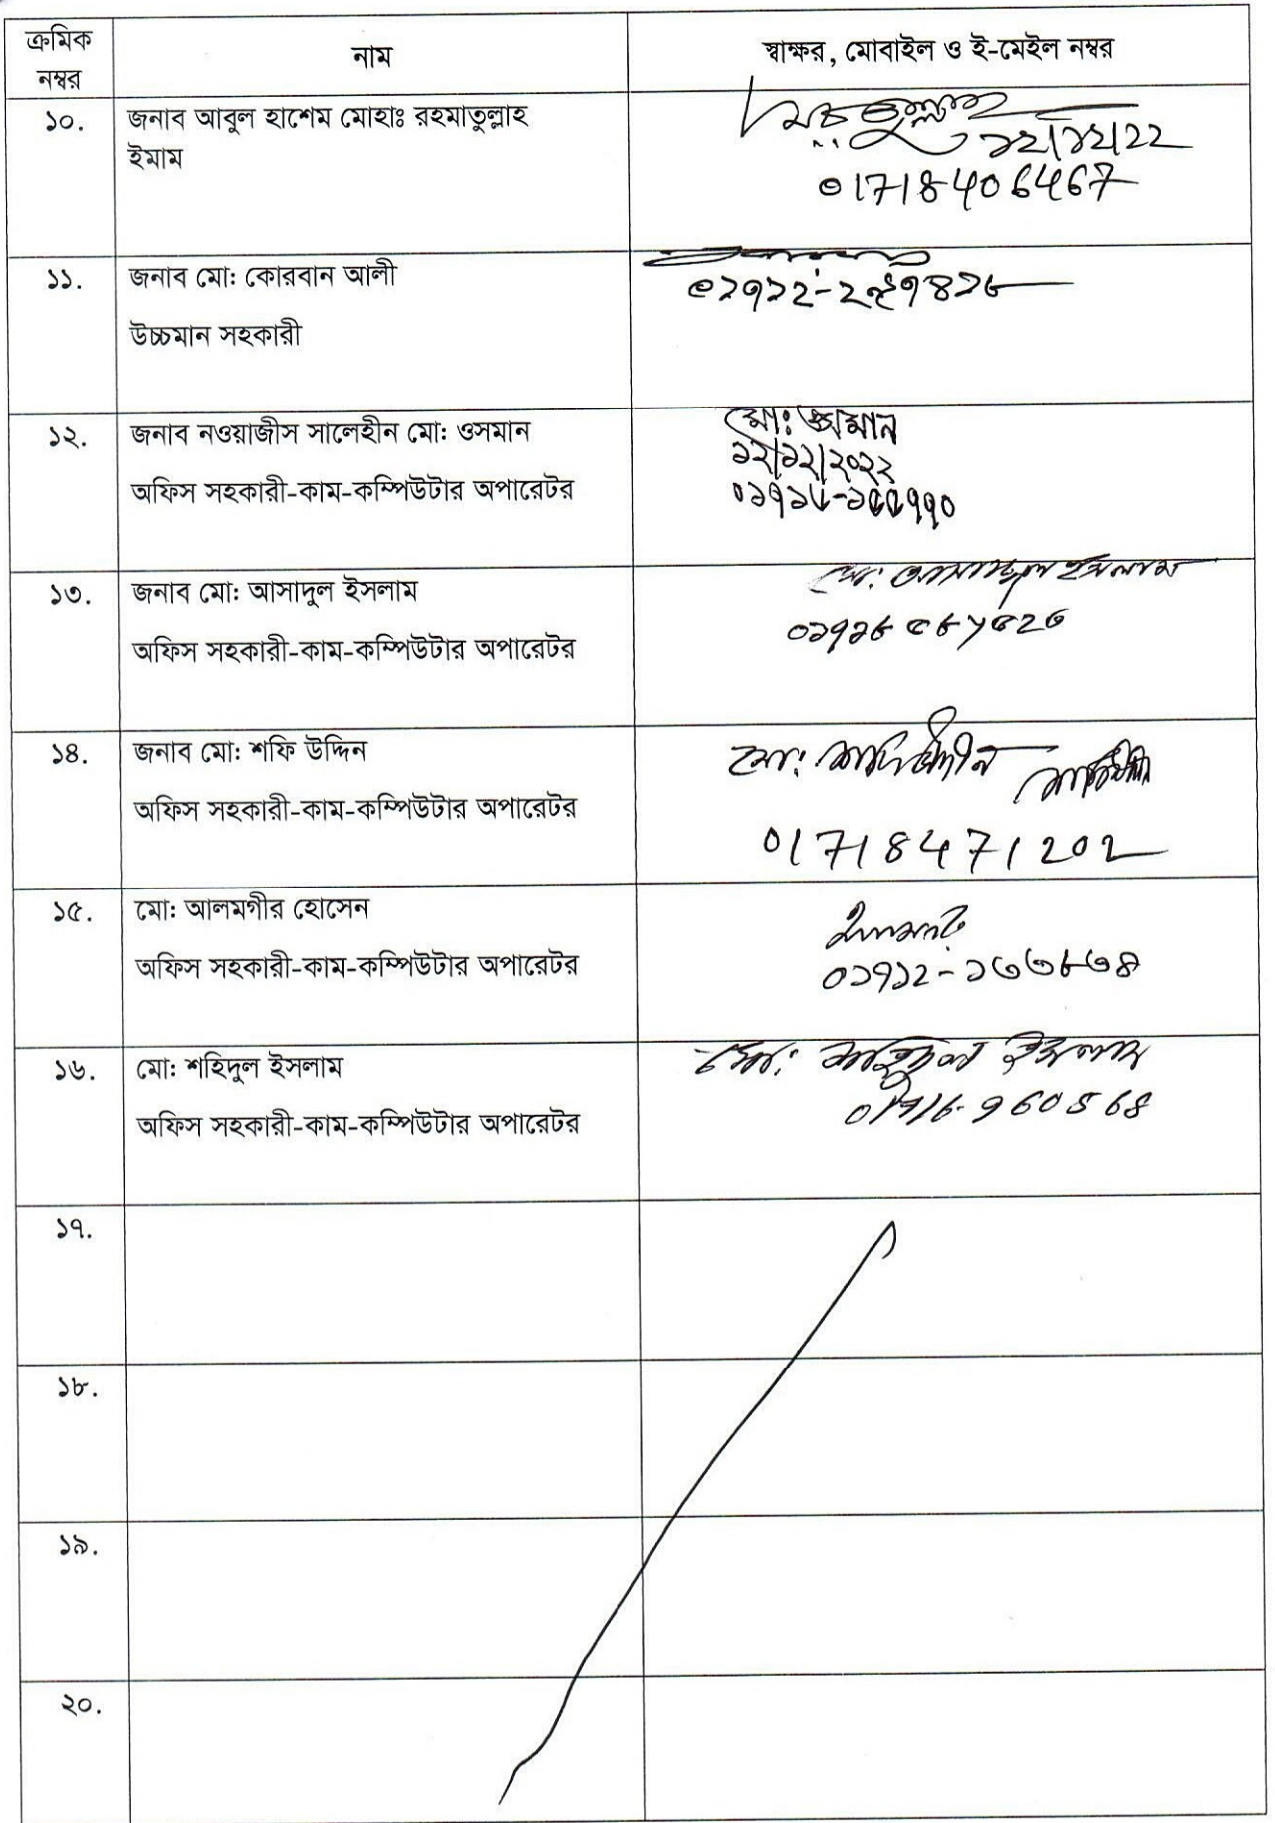 ক্রমিক
নম্বর
নাম
স্বাক্ষর, মোবাইল ও ই-মেইল নম্বর
১০.
জনাব আবুল হাশেম মোহাঃ রহমাতুল্লাহ
ইমাম
১২/১২/22
01718406467
১১.
জনাব মো: কোরবান আলী
উচ্চমান সহকারী
১২.
জনাব নওয়াজীস সালেহীন মো: ওসমান
অফিস সহকারী-কাম-কম্পিউটার অপারেটর
মো: ওসমান
১২/১২/২০২২
১৩.
জনাব মো: আসাদুল ইসলাম
অফিস সহকারী-কাম-কম্পিউটার অপারেটর
মো: আসাদুল ইসলাম
১৪.
জনাব মো: শফি উদ্দিন
অফিস সহকারী-কাম-কম্পিউটার অপারেটর
মো: শফিউদ্দীন
01718471202
১৫.
মো: আলমগীর হোসেন
অফিস সহকারী-কাম-কম্পিউটার অপারেটর
০১৭১২-১৩৩৮৩৪
১৬.
মো: শহিদুল ইসলাম
অফিস সহকারী-কাম-কম্পিউটার অপারেটর
মো: শহিদুল ইসলাম
01716-960568
১৭.
১৮.
১৯.
২০.